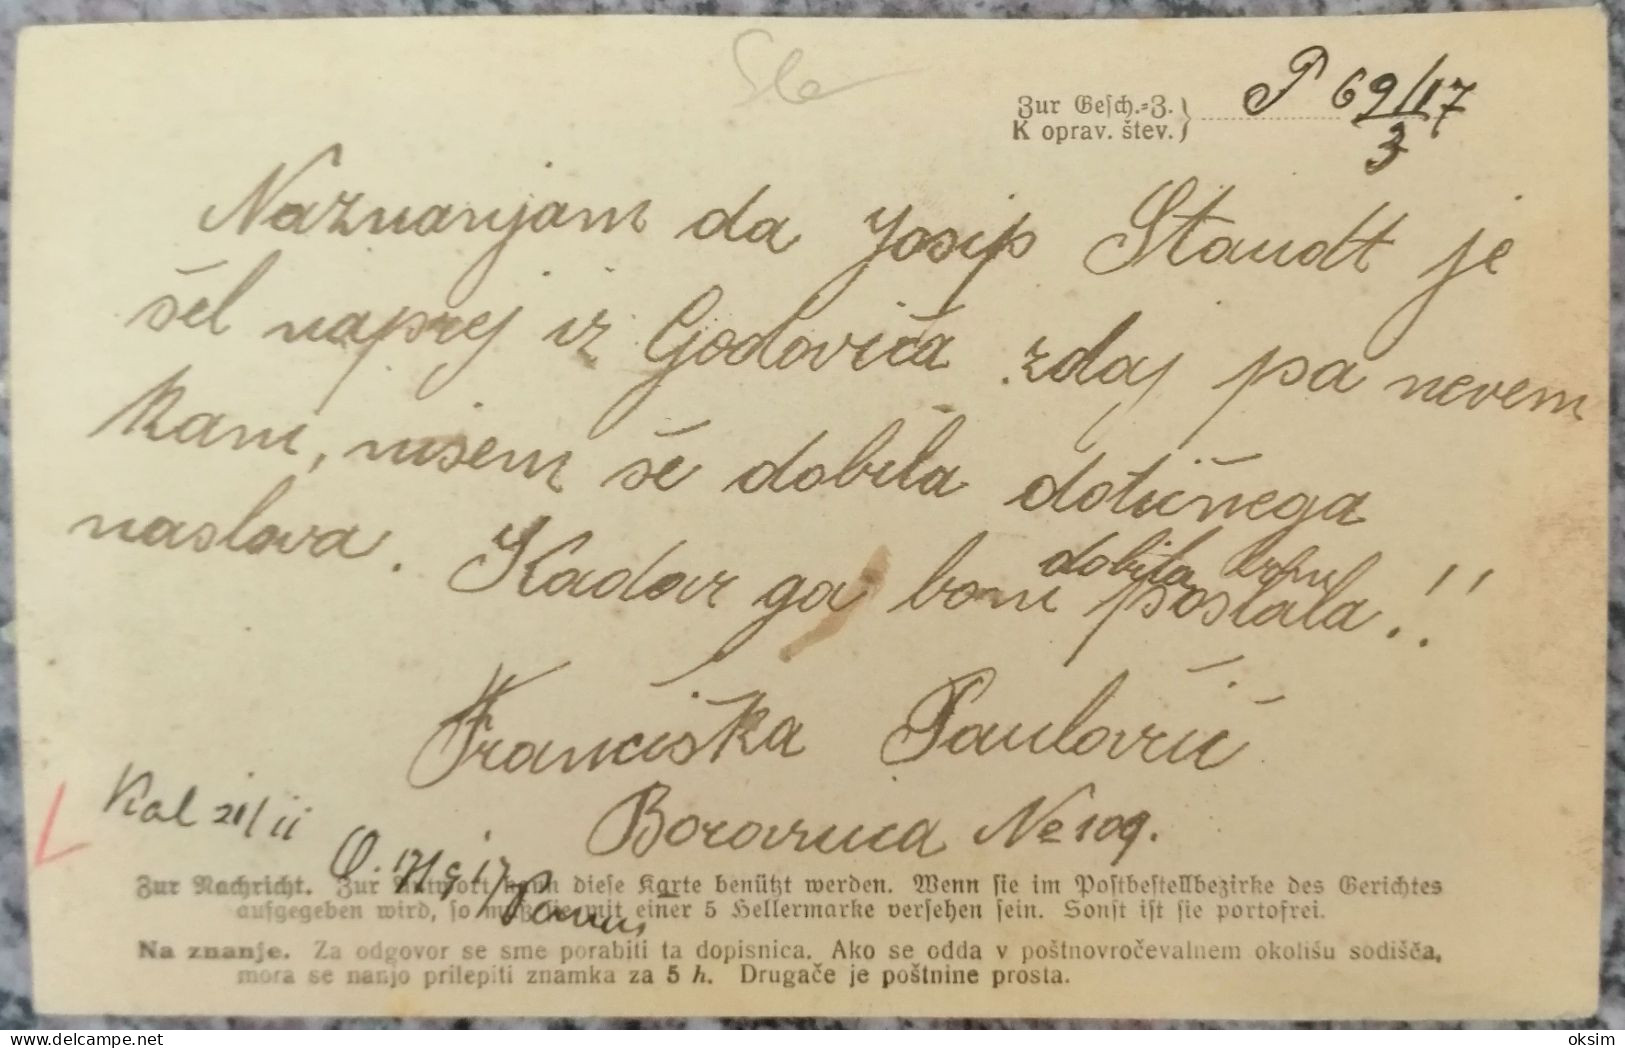 Sle
Zur Gesch.-Z.
K oprav. štev.
P 69/17
3
Naznanjam da Josip Staudt je
šel naprej iz Godoviča zdaj pa nevem
kam, nisem še dobila dotičnega
naslova. Kadar ga bom dobila bom poslala.!!
Frančiška Paulovčič
Borovnica № 109.
Kal 21/ii
Zur Nachricht. Zur Antwort kann diese Karte benützt werden. Wenn sie im Postbestellbezirke des Gerichtes
aufgegeben wird, so muß sie mit einer 5 Hellermarke versehen sein. Sonst ist sie portofrei.
Na znanje. Za odgovor se sme porabiti ta dopisnica. Ako se odda v poštnovročevalnem okolišu sodišča,
mora se nanjo prilepiti znamka za 5 h. Drugače je poštnine prosta.
delcampe.net
oksim